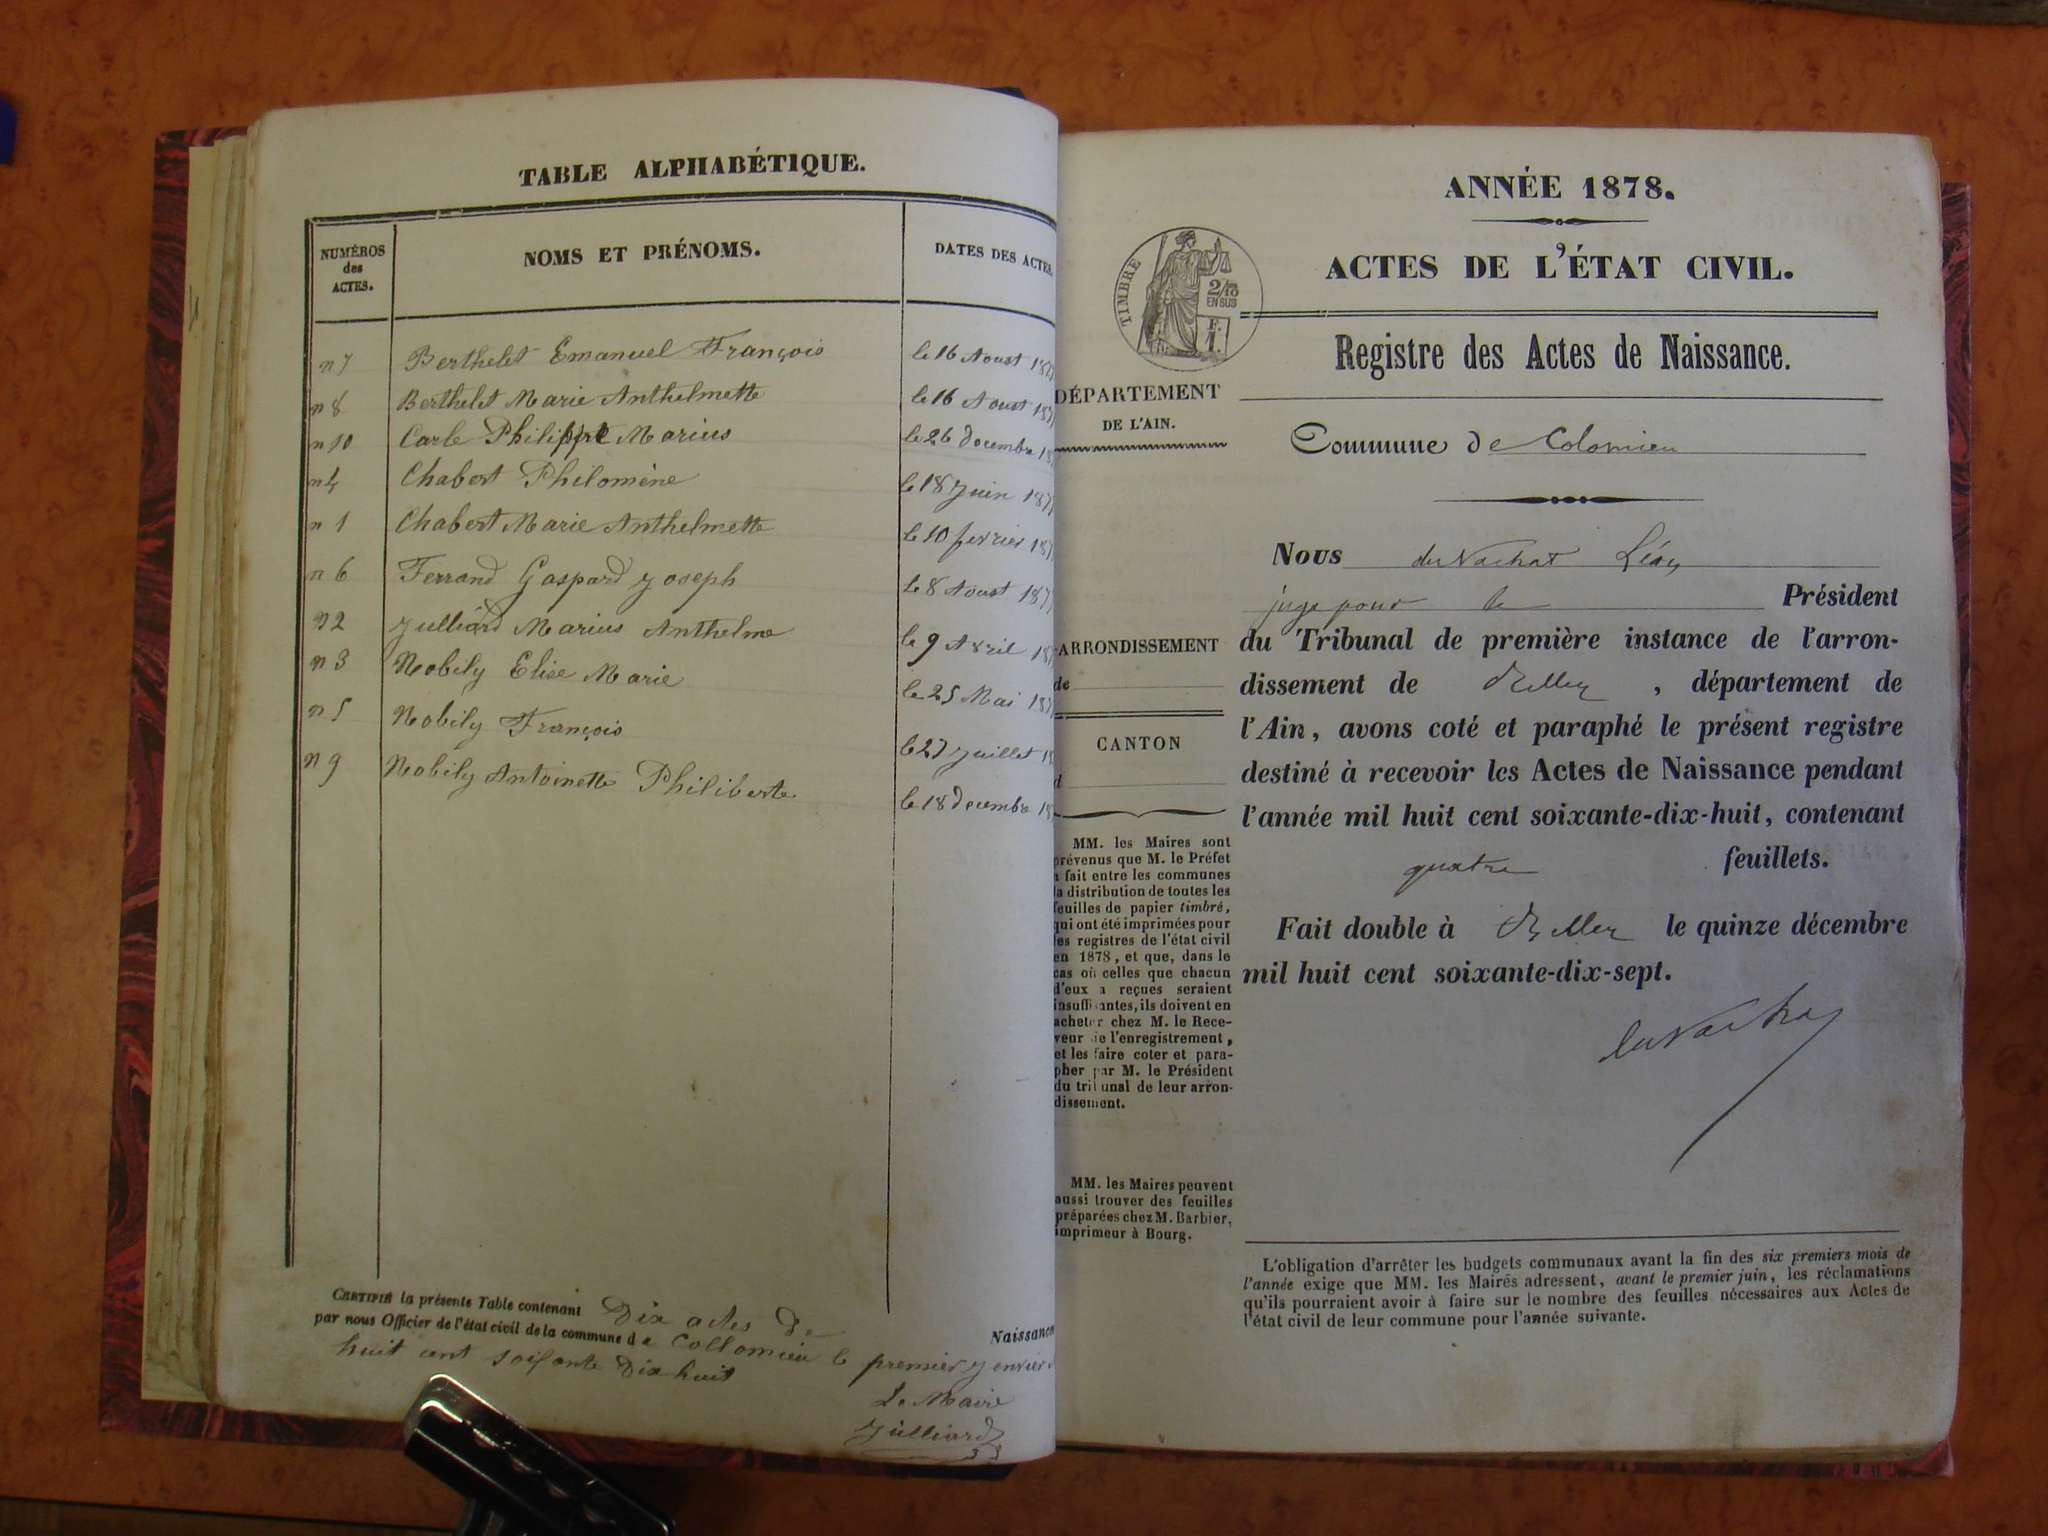 TABLE ALPHABÉTIQUE.
NUMÉROS
des
ACTES.
NOMS ET PRÉNOMS.
DATES DES ACTES
n 7 Berthelet Emanuel François le 16 Aoust 187
n 8 Berthelet Marie Anthelmette le 16 Aoust 187
n 10 Carle Philippe Marius le 26 decembre 18
n 4 Chabert Philomène le 18 Juin 187
n 1 Chabert Marie Anthelmette le 10 fevrier 187
n 6 Ferrand Gaspard Joseph le 8 Aoust 187
n 2 Julliard Marius Anthelme le 9 Avril 187
n 3 Nobily Elise Marie le 25 Mai 187
n 5 Nobily François le 27 Juillet 18
n 9 Nobily Antoinette Philiberte le 18 decembre 18
CERTIFIÉ la présente Table contenant Dix actes de Naissance
par nous Officier de l'état civil de la commune de Collomieu le premier Janvier
huit cent soixante Dix huit
Le Maire
Julliard
ANNÉE 1878.
ACTES DE L'ÉTAT CIVIL.
TIMBRE
2/10
EN SUS
F.
1.
Registre des Actes de Naissance.
DÉPARTEMENT
DE L'AIN.
Commune de Colomieu
Nous du Vachat Léon
juge pour le Président
du Tribunal de première instance de l'arron-
dissement de Belley, département de
l'Ain, avons coté et paraphé le présent registre
destiné à recevoir les Actes de Naissance pendant
l'année mil huit cent soixante-dix-huit, contenant
quatre feuillets.
Fait double à Belley le quinze décembre
mil huit cent soixante-dix-sept.
du Vachat
ARRONDISSEMENT
de
CANTON
d
MM. les Maires sont
prévenus que M. le Préfet
a fait entre les communes
la distribution de toutes les
feuilles de papier timbré,
qui ont été imprimées pour
les registres de l'état civil
en 1878, et que, dans le
cas où celles que chacun
d'eux a reçues seraient
insuffisantes, ils doivent en
acheter chez M. le Rece-
veur de l'enregistrement,
et les faire coter et para-
pher par M. le Président
du tribunal de leur arron-
dissement.
MM. les Maires peuvent
aussi trouver des feuilles
préparées chez M. Barbier,
imprimeur à Bourg.
L'obligation d'arrêter les budgets communaux avant la fin des six premiers mois de
l'année exige que MM. les Maires adressent, avant le premier juin, les réclamations
qu'ils pourraient avoir à faire sur le nombre des feuilles nécessaires aux Actes de
l'état civil de leur commune pour l'année suivante.